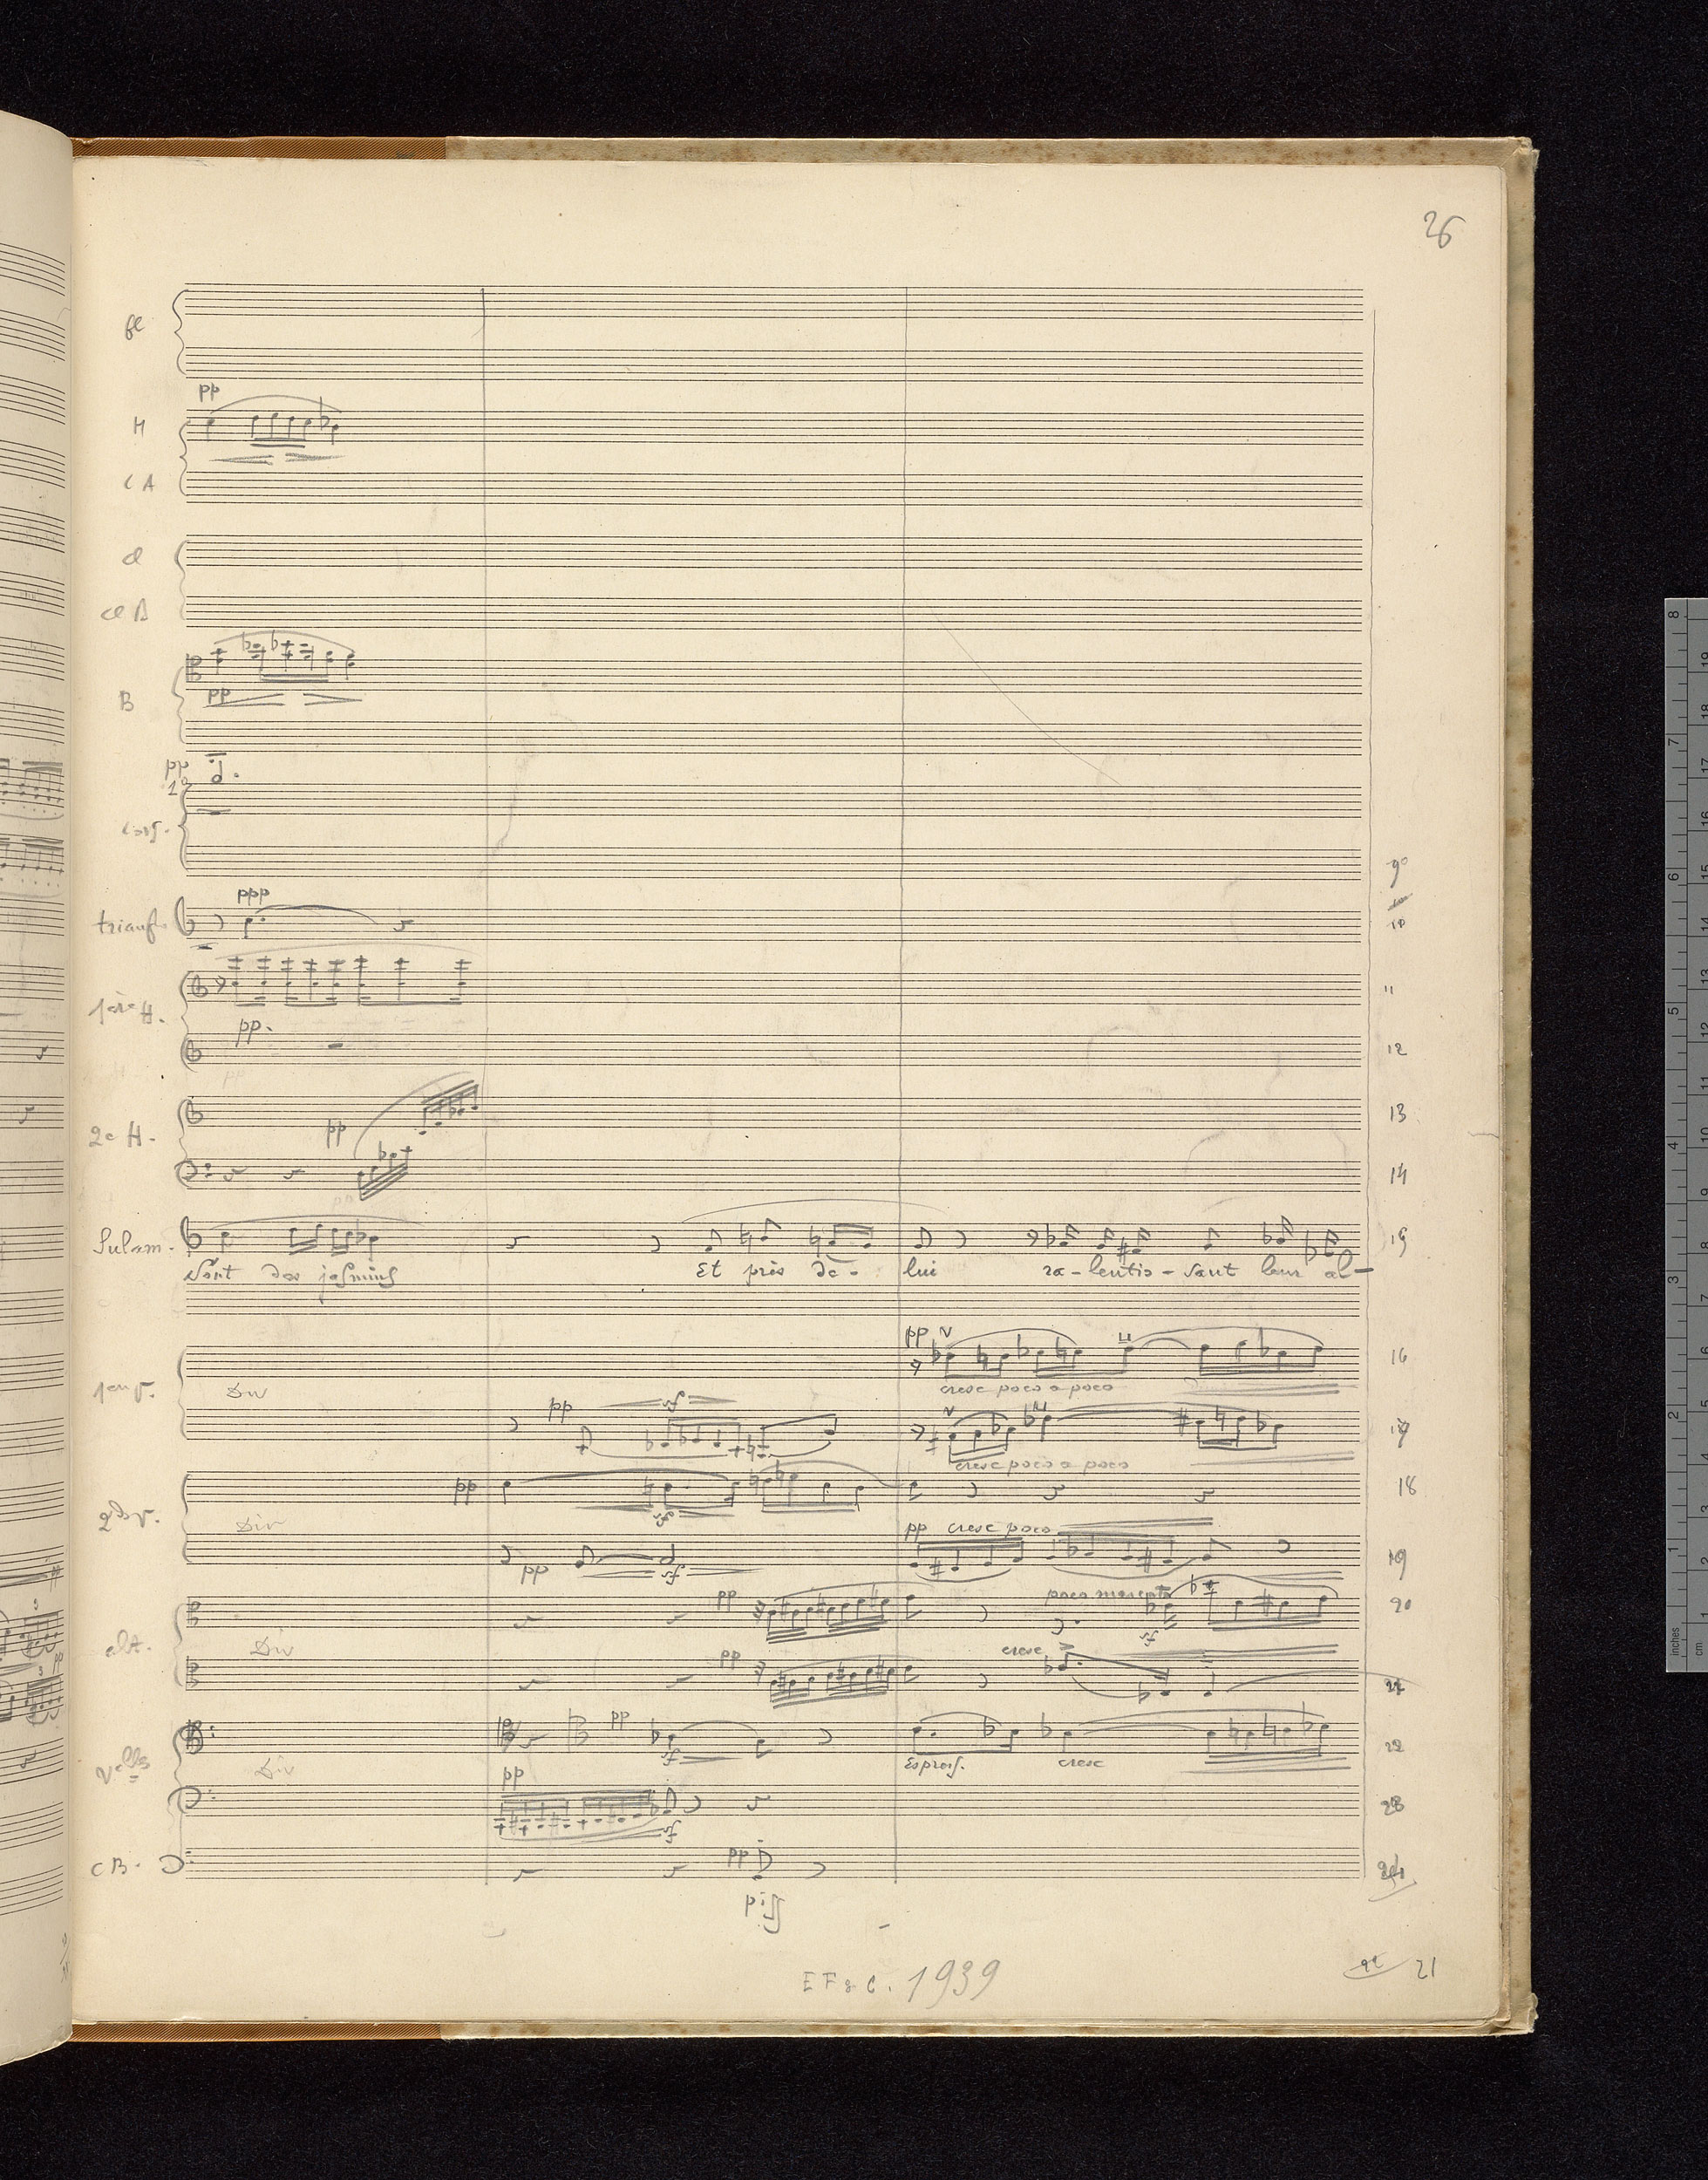 26
fl
pp
H
CA
cl
cl B
pp
B
pp
1º
9º
ppp
triang.
10
11
1ère H.
pp.
12
13
2e H.
pp
14
Sulam.
15
sont des jasmins Et près de - lui ra - lentis - sant leur al -
pp
16
1ers V.
Div
cresc poco a poco
pp
sf
17
cresc poco a poco
pp
18
sf
2ds V.
Div
pp cresc poco
pp
sf
19
pp
poco marcato
20
sf
alt.
Div
pp
cresc
21
pp
22
sf
Vclles
Div
Espress.
cresc
pp
23
sf
CB.
pp
24
pizz
EF & C. 1939
21